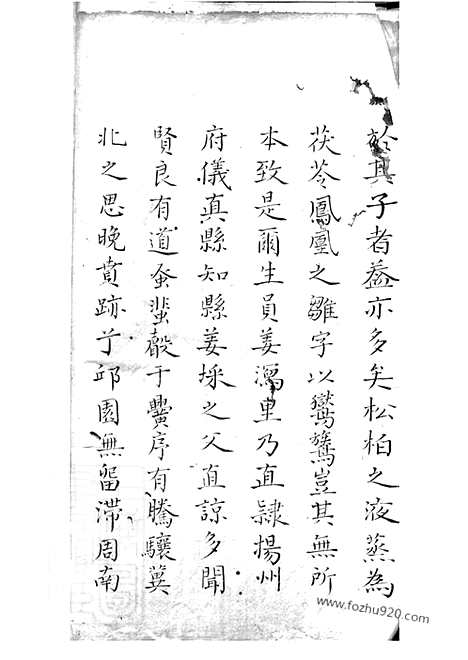 於其子者蓋亦多矣松柏之液蒸為
茯苓鳳凰之雛字以鸞鷟豈其無所
本致是爾生員姜里乃直隸揚州
府儀真縣知縣姜埰之父直諒多聞
賢良有道蚤蜚于黌序有騰驤冀
北之思晚賁跡于邱園無留滯周南
www.fozhu920.com